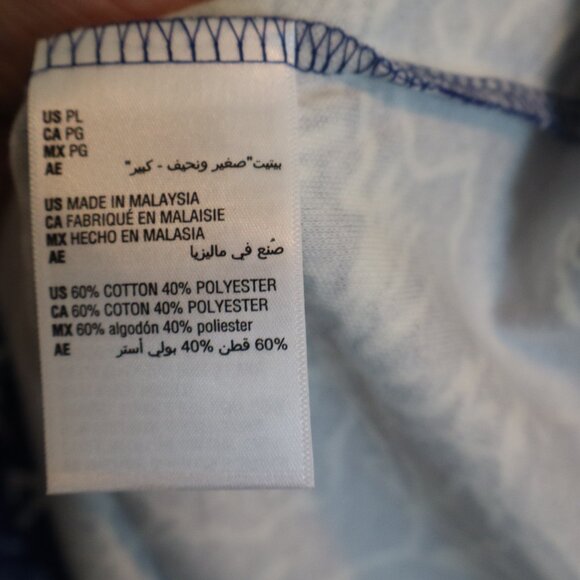 US PL
CA PG
MX PG
AE بيتيت"صغير ونحيف - كبير"
US MADE IN MALAYSIA
CA FABRIQUÉ EN MALAISIE
MX HECHO EN MALASIA
AE صُنع في ماليزيا
US 60% COTTON 40% POLYESTER
CA 60% COTON 40% POLYESTER
MX 60% algodón 40% poliester
AE 60% قطن 40% بولي أستر